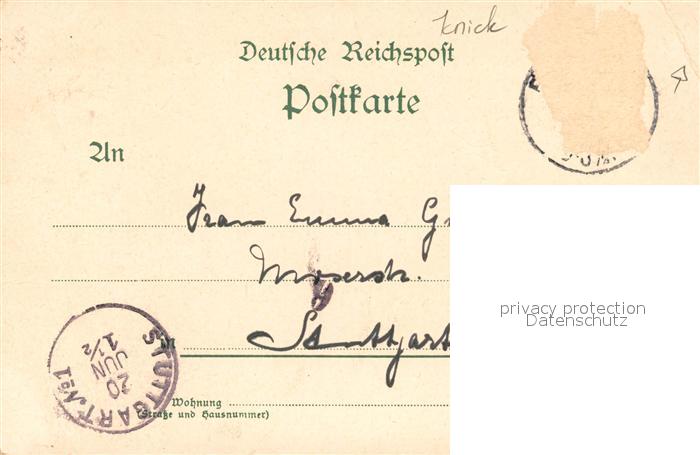 Knick
Deutsche Reichspost
Postkarte
An
Frau Emma G
Moserstr.
in Stuttgart
Wohnung
(Straße und Hausnummer)
STUTTGART No. 1
20
JUN
1½
privacy protection
Datenschutz